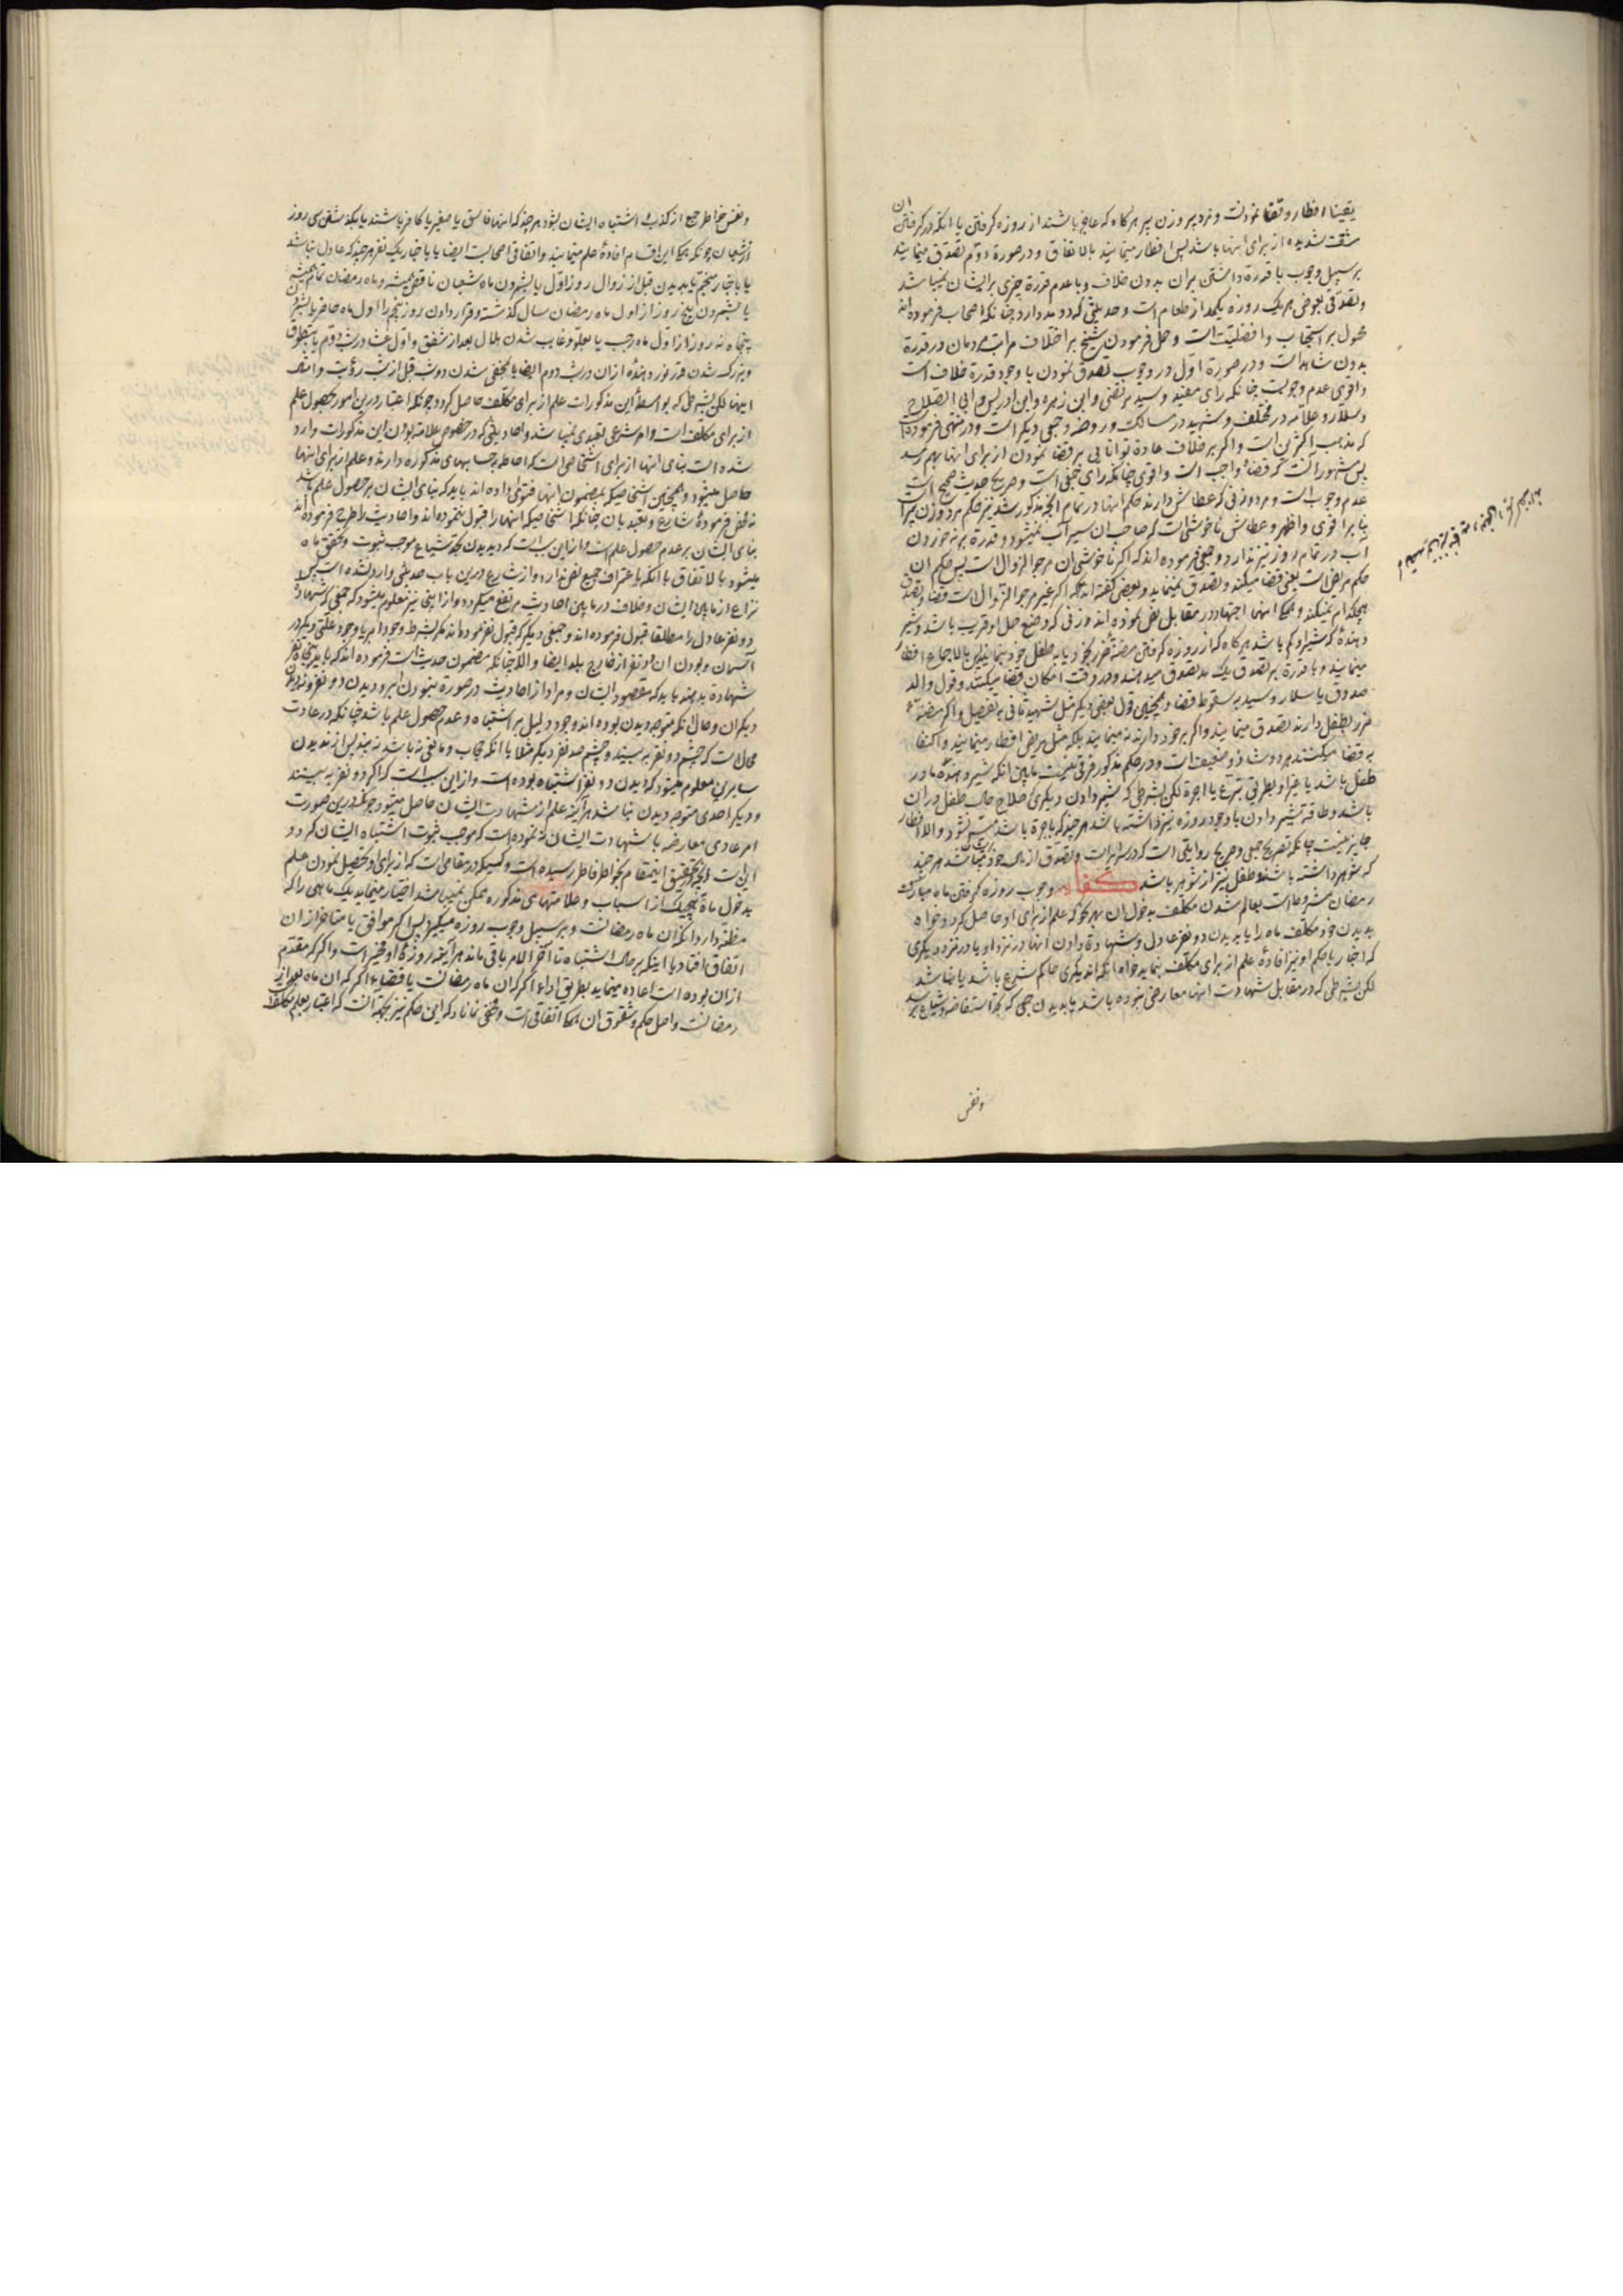 یقینا افطار و قضا نمودنست و مرد پیر و زن پیر هرگاه که عاجز باشند از روزه گرفتن یا انکه در گرفتن ان
مشقت شدیده از برای انها باشد پس افطار مینمایند بالاتفاق و در صورة دوم تصدق مینمایند
بر سبیل وجوب با قدرة داشتن بران بدون خلاف و با عدم قدرة چیزی بر ایشان نمیباشد
و تصدق بعوض هر یک روزه یکمد از طعام است و حدیثی که دو مد دارد چنانکه اصحاب فرموده اند
محمول بر استحباب و افضلیت است و حمل فرمودن شیخ بر اختلاف مراتب مردمان در قدرة
بدون شاهد است و در صورة اول در وجوب تصدق نمودن با وجود قدرة خلاف است
و اقوی عدم وجوبست چنانکه رای مفید و سید مرتضی و ابن زهره و ابن ادریس و ابی الصلاح
و سلار و علامه در مختلف و شهید در مسالک و روضه و جمعی دیگر است و در منتهی فرموده است
که مذهب اکثرین است و اگر بر خلاف عادة توانایی بر قضا نمودن از برای انها بهم رسد
پس مشهور انست که قضا واجب است و اقوی چنانکه رای جمعی است و صریح حدیث صحیح است
عدم وجوب است و مرد و زنی که عطاش دارند حکم انها در تمام انچه مذکور شد نیز حکم مرد و زن پیر است
بنا بر اقوی و اظهر و عطاش ناخوشی است که صاحب ان سیر آب نمیشود و قدرة بر نه خوردن
آب در تمام روز نیز ندارد و جمعی فرموده اند که اگر ناخوشی ان مرجو الزوال است پس حکم ان
حکم مریض است یعنی قضا میکند و تصدق نمینماید و بعضی گفته اند که اگر غیر مرجو الزوال است قضا و تصدق
هیچکدام نمیکند و همکی اینها اجتهاد در مقابل نص نموده اند و زنی که وضع حمل او قریب باشد و شیر
دهندهٔ که شیر او کم باشد هرگاه که از روزه گرفتن مضنهٔ ضرر بخود یا به طفل خود بنمایند پس بالاجماع افطار
مینمایند و با قدرة بر تصدق یک مد تصدق میدهند و در وقت امکان قضا میکنند و قول والد
صدوق یا سلار و سید به سقوط قضا و همچنین قول بعضی دیگر مثل شهید ثانی به تفصیل و اگر مضنهٔ
ضرر بطفل دارند تصدق مینمایند و اگر بخود دارند نه مینمایند بلکه مثل مریض افطار مینمایند و اکتفا
به قضا میکنند هر دو شاذ و ضعیف است و در حکم مذکور فرقی نیست مابین انکه شیر دهنده مادر
طفل باشد یا غیر او بطریق تبرع یا اجرة لکن بشرطی که شیر دادن دیگری صلاح حال طفل در ان
باشد و طاقة شیر دادن با وجود روزه نیز داشته باشد هر چند که باجرة باشد میسر نشود و الا افطار
جایز نیست چنانکه تصریح جمعی و صریح روایتی است که در سرایر است و تصدق از مال خود میباشد هر چند
که شوهر داشته باشند و طفل نیز از شوهر باشد کفایه وجوب روزه گرفتن ماه مبارک
رمضان مشروط است بعالم شدن مکلف بدخول ان بهر نحو که علم از برای او حاصل گردد خواه
بدیدن خود مکلف ماه را یا بدیدن دو نفر عادل و شهادة دادن انها در نزد او یا در نزد دیگری
که اخبار یا حکم او نیز افادهٔ علم از برای مکلف بنماید خواه انکه اندیگری حاکم شرع باشد یا نباشد
لکن بشرطی که در مقابل شهادت انها معارضی نبوده باشد یا بدیدن جمعی که بحد استفاضه و شیاع برسد
و نفس
و نفس خواطر جمع از کذب یا اشتباه ایشان بشود هر چند که انها فاسق یا صغیر یا کافر باشند یا بگذشتن سی روز
از شعبان چونکه همکی این اقسام افادهٔ علم مینمایند و اتفاقی اصحابست ایضا یا باخبار یک نفر هر چند که عادل نباشد
یا باخبار منجم یا بدیدن قبل از زوال روز اول یا بشمردن ماه شعبان ناقص همیشه و ماه رمضان تمام همیشه
یا بشمردن پنج روز از اول ماه رمضان سال گذشته و قرار دادن روز پنجم را اول ماه حاضر یا بشمردن
پنجاه نه روز از اول ماه رجب یا بعلو و غایب شدن هلال بعد از شفق و اول عشا در شب دوم یا بتطوق
و بزرگ شدن قدر نور دهندهٔ از ان در شب دوم ایضا یا بمخفی شدن دو شب قبل از شب رؤیت و امثال
اینها لکن بشرطی که بواسطهٔ این مذکورات علم از برای مکلف حاصل گردد چونکه اعتبار در این امور بحصول علم
از برای مکلف است و امر شرعی تعبدی نمیباشد و احادیثی که در خصوص علامة بودن این مذکورات وارد
شده است بنای انها از برای اشخاصی است که احاطه بر حسابهای مذکوره دارند و علم از برای انها
حاصل میشود و همچنین اشخاصیکه بمضمون انها فتوی داده اند باید که بنای ایشان بر حصول علم باشد
نه محض فرمودهٔ شارع و تعبد بان چنانکه اشخاصیکه انها را قبول ننموده اند و احادیث را طرح فرموده اند
بنای ایشان بر عدم حصول علم است و از این سبب است که دیدن بحد شیاع موجب ثبوت و تحقق ماه
میشود بالاتفاق با انکه باعتراف جمیع نص ندارد و از شارع در این باب حدیثی وارد نشده است پس
نزاع از مابین ایشان و خلاف در مابین احادیث مرتفع میگردد و از اینجا نیز معلوم میشود که جمعی که شهادة
دو نفر عادل را مطلقا قبول فرموده اند و جمعی دیگر که قبول نفرموده اند مگر بشرط وجود ابر یا وجود علتی دیگر در
آسمان و بودن ان دو نفر از خارج بلد ایضا و الا چنانکه مضمون حدیث است فرموده اند که باید پنجاه نفر
شهادة بدهند باید که مقصود ایشان و مراد از احادیث در صورة نبودن ابر و دیدن دو نفر و ندیدن
دیگران و حال انکه متوجه دیدن بوده اند وجود دلیل بر اشتباه و عدم حصول علم باشد چنانکه در عادت
محال است که چشم دو نفر به بیند و چشم صد نفر دیگر مثلا با انکه حجاب و مانعی نه باشد نه بیند پس از ندیدن
سایرین معلوم میشود که دیدن دو نفر اشتباه بوده است و از این سبب است که اگر دو نفر به بینند
و دیگر احدی متوجه دیدن نباشد هر آینه علم از شهادت ایشان حاصل میشود چونکه در این صورت
امر عادی معارضه با شهادت ایشان نه نموده است که موجب ثبوت اشتباه ایشان گردد
این است انچه بتحقیق اینمقام بخواطر فاطر رسیده است و کسیکه در مقامی است که از برای او تحصیل نمودن علم
بدخول ماه بهیچیک از اسباب و علامتهای مذکوره ممکن نمیباشد اختیار مینماید یک ماهی را که
مظنه دارد انکه ان ماه رمضانست و بر سبیل وجوب روزه میگیرد پس اگر موافق یا متاخر از ان
اتفاق افتاد یا اینکه بر حال اشتباه تا آخر الامر باقی ماند هر آینه روزهٔ او مجزیست و اگر که مقدم
از ان بوده است اعاده مینماید بطریق اداء اگر که ان ماه رمضانست یا قضاء اگر که ان ماه بعد از
رمضانست و اصل حکم و شقوق ان همکی اتفاقی است و مخفی نماناد که این حکم نیز بجهة انست که اعتبار بعلم مکلف